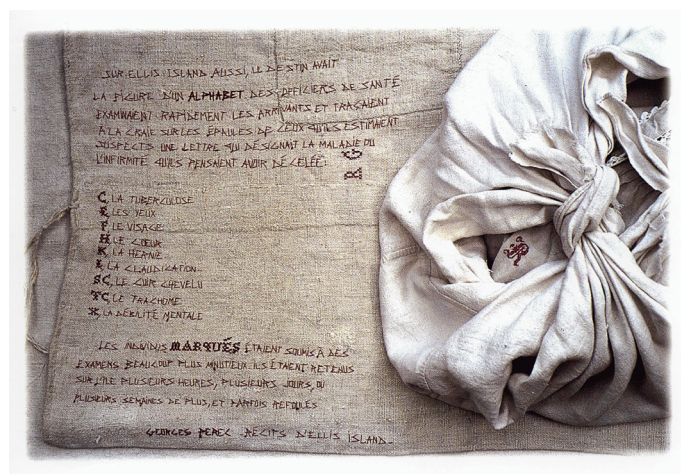 SUR ELLIS ISLAND AUSSI, LE DESTIN AVAIT
LA FIGURE D'UN ALPHABET. DES OFFICIERS DE SANTÉ
EXAMINAIENT RAPIDEMENT LES ARRIVANTS ET TRAÇAIENT
À LA CRAIE SUR LES ÉPAULES DE CEUX QU'ILS ESTIMAIENT
SUSPECTS UNE LETTRE QUI DÉSIGNAIT LA MALADIE OU
L'INFIRMITÉ QU'ILS PENSAIENT AVOIR DÉCELÉE:
C, LA TUBERCULOSE
E, LES YEUX
F, LE VISAGE
H, LE COEUR
K, LA HERNIE
L, LA CLAUDICATION
SC, LE CUIR CHEVELU
TC, LE TRACHOME
X, LA DÉBILITÉ MENTALE
LES INDIVIDUS MARQUÉS ÉTAIENT SOUMIS À DES
EXAMENS BEAUCOUP PLUS MINUTIEUX. ILS ÉTAIENT RETENUS
SUR L'ÎLE PLUSIEURS HEURES, PLUSIEURS JOURS, OU
PLUSIEURS SEMAINES DE PLUS, ET PARFOIS REFOULÉS
GEORGES PEREC RÉCITS D'ELLIS ISLAND